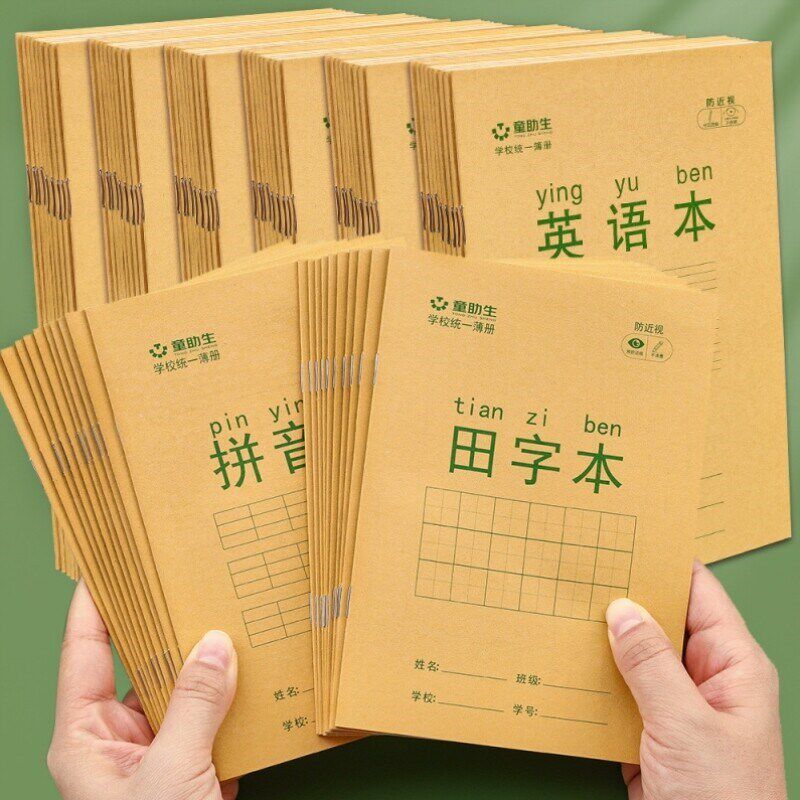 童助生
学校统一薄册
防近视
ying yu ben
英语本
童助生
学校统一薄册
pin yin
拼音
姓名:
学校:
童助生
学校统一薄册
防近视
tian zi ben
田字本
姓名: 班级:
学校: 学号: